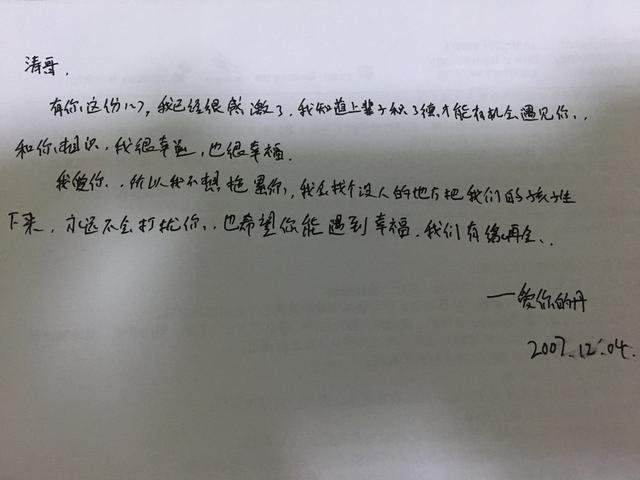 涛哥，
有你这份心，我已经很感激了，我知道上辈子积了德，才能有机会遇见你，
和你相识，我很幸运，也很幸福．
我爱你，所以我不想拖累你，我会找个没人的地方把我们的孩子生
下来，永远不会打扰你，也希望你能遇到幸福．我们有缘再会．
—爱你的丹
2007.12.04.